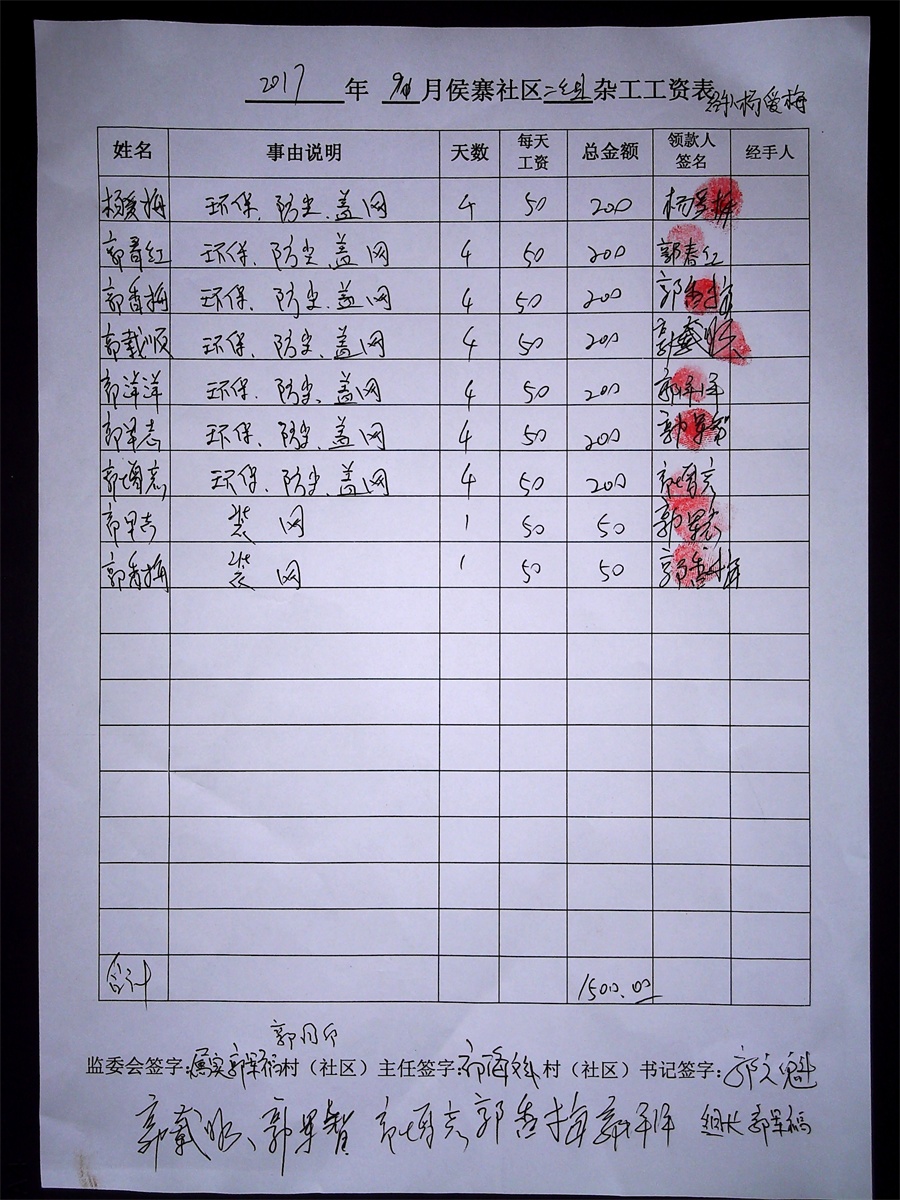 2017 年 9 月侯寨社区二组杂工工资表
杨爱梅
姓名 事由说明 天数 每天工资 总金额 领款人签名 经手人
杨爱梅 环保、防尘、盖网 4 50 200 杨爱梅
郭春红 环保、防尘、盖网 4 50 200 郭春红
郭香梅 环保、防尘、盖网 4 50 200 郭香梅
郭载顺 环保、防尘、盖网 4 50 200 郭载顺
郭洋洋 环保、防尘、盖网 4 50 200 郭洋洋
环保、防尘、盖网 4 50 200
郭增志 环保、防尘、盖网 4 50 200 郭增志
装网 1 50 50
郭香梅 装网 1 50 50 郭香梅
合计 1500.00
监委会签字:属实 村（社区）主任签字: 村（社区）书记签字:郭文魁
郭载顺 郭增志 郭香梅 组长